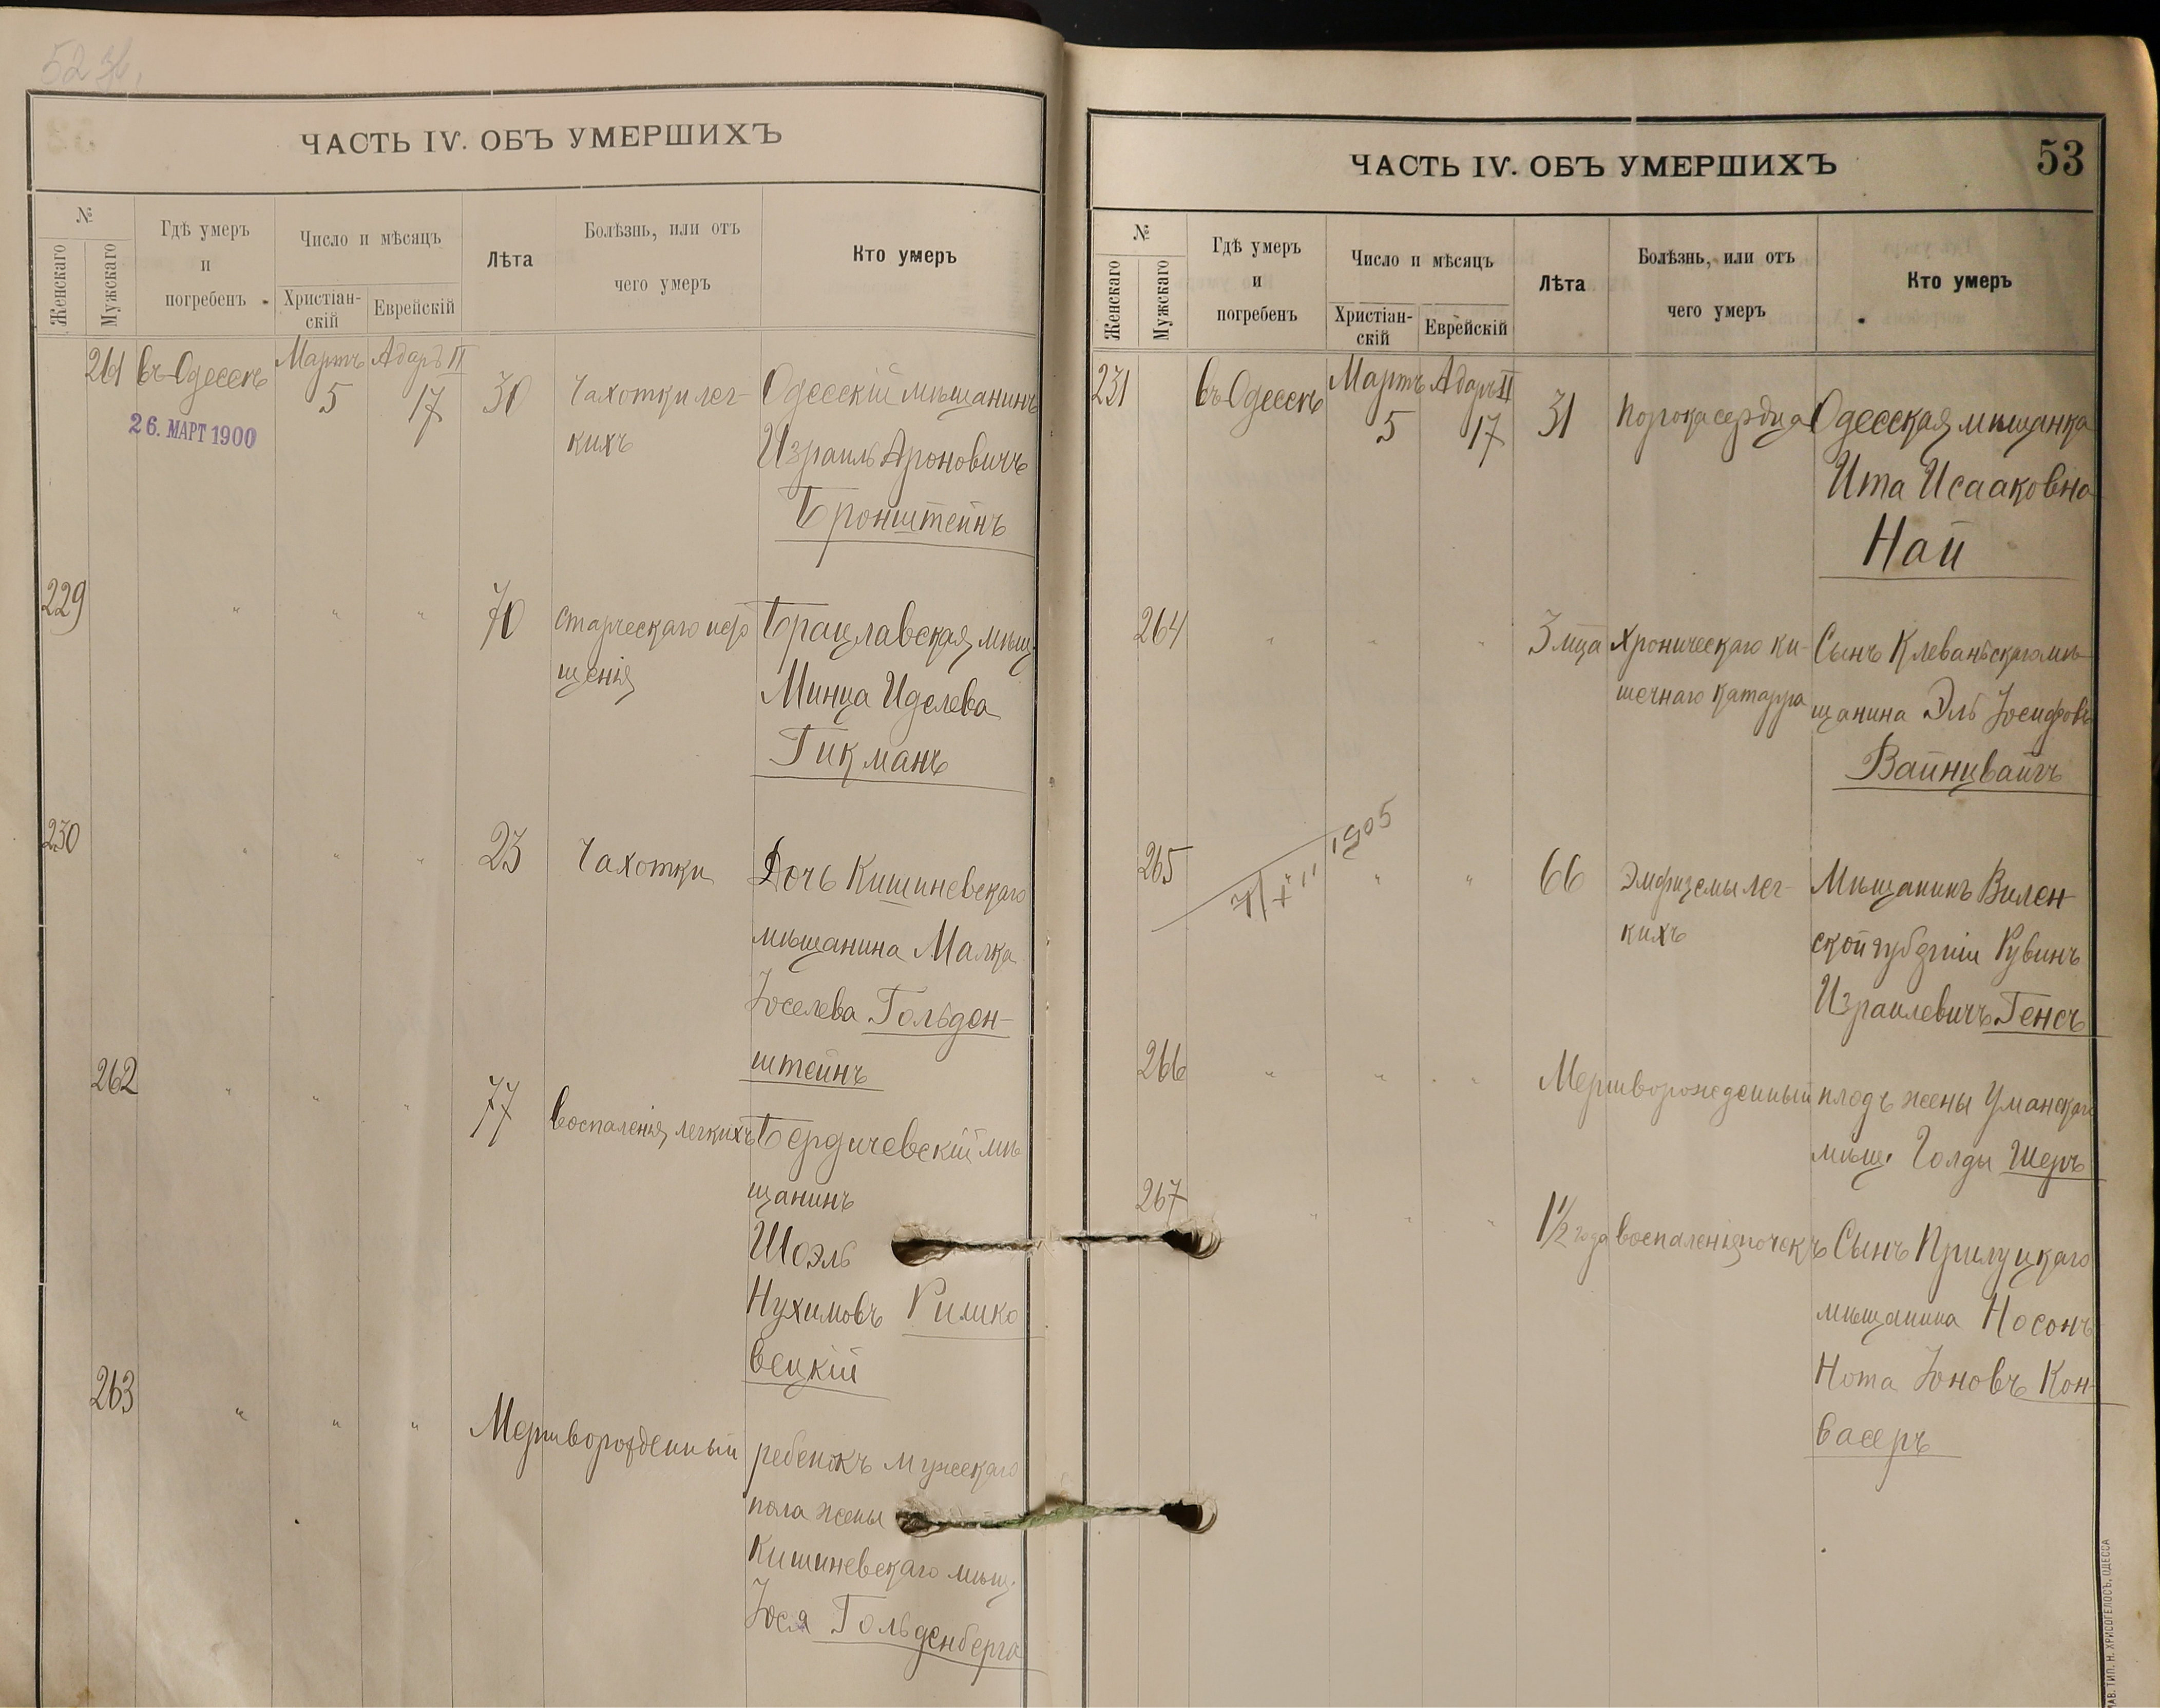 52 об.
ЧАСТЬ IV. ОБЪ УМЕРШИХЪ
№
Женскаго
Мужскаго
Гдѣ умеръ
и
погребенъ
Число и мѣсяцъ
Христіан-
скій
Еврейскій
Лѣта
Болѣзнь, или отъ
чего умеръ
Кто умеръ
261 въ Одессѣ Мартъ 5 Адаръ II 17 30 Чахотки лег-
кихъ
Одесскій мѣщанинъ
Израиль Ароновичъ
Бронштейнъ
26. МАРТ 1900
229 " " " 70 старческаго исто
щенія
Брацлавская мѣщ.
Минца Иделева
Гикманъ
230 " " " 23 Чахотки
Дочь Кишиневскаго
мѣщанина Малка
Іоселева Гольдон-
штейнъ
262 " " " 77 воспаленія легкихъ
Бердичевскій мѣ
щанинъ
Шоэль
Нухимовъ Римко
вецкій
263 " " " Мертворожденный
ребенокъ мужскаго
пола жены
Кишиневскаго мѣщ.
Іося Гольденберга
ЧАСТЬ IV. ОБЪ УМЕРШИХЪ
53
№
Женскаго
Мужскаго
Гдѣ умеръ
и
погребенъ
Число и мѣсяцъ
Христіан-
скій
Еврейскій
Лѣта
Болѣзнь, или отъ
чего умеръ
Кто умеръ
231 въ Одессѣ Мартъ 5 Адаръ II 17 31 порока сердца
Одесская мѣщанка
Ита Исааковна
Най
264 " " " 3 мца Хроническаго ки-
шечнаго катарра
Сынъ Клеваньскаго мѣ
щанина Эль Іосифовъ
Вайнцвайгъ
1905
265 " " " 66 Эмфиземы лег-
кихъ
Мѣщанинъ Вилен
ской губерніи Рувинъ
Израилевичъ Генсъ
266 " " " Мертворожденный плодъ жены Уманскаго
мѣщ. Голды Шеръ
267 " " " 1 1/2 года воспаленія почекъ
Сынъ Прилуцкаго
мѣщанина Носонъ
Нота Іоновъ Кон-
васеръ
ТИП. Н. ХРИСОГЕЛОСЪ, ОДЕССА